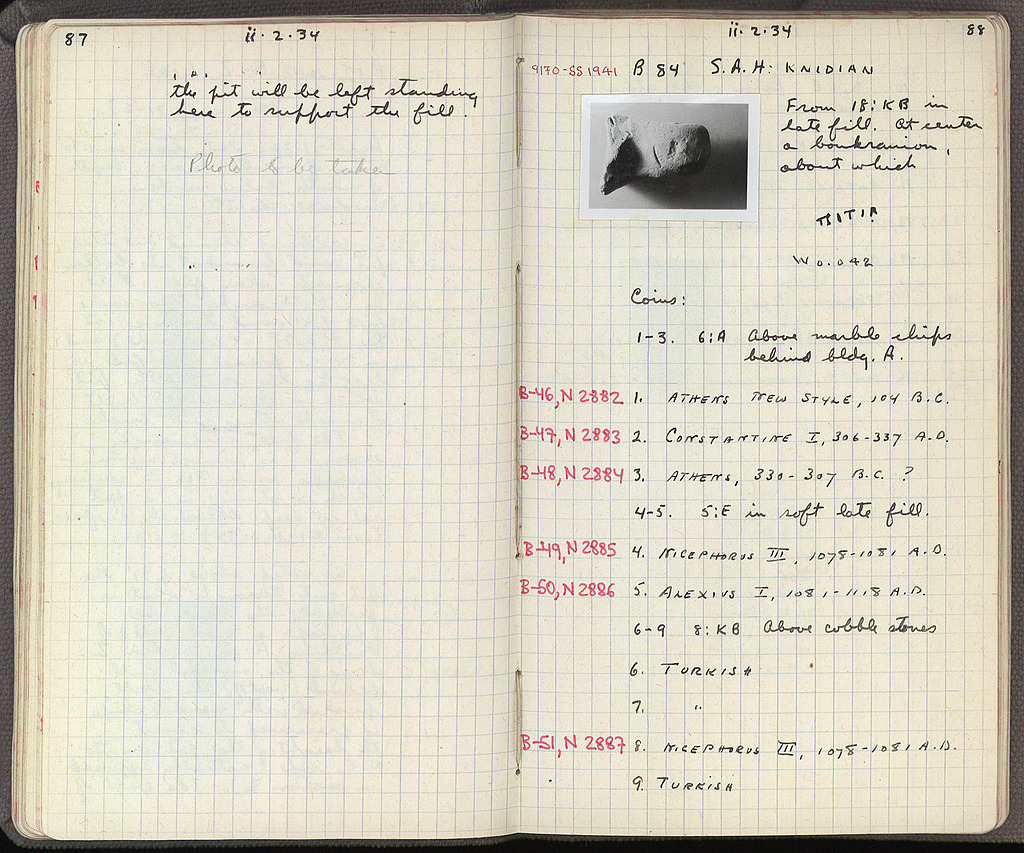 87
ii. 2. 34
the pit will be left standing
here to support the fill.
Photo to be taken
ii. 2. 34
88
9170-SS 1941 B 84 S.A.H: KNIDIAN
From 18: KB in
late fill. At center
a boukranion,
about which
W 0.042
Coins:
1-3. 6:A Above marble chips
behind bldg. A.
B-46, N 2882 1. ATHENS NEW STYLE, 104 B.C.
B-47, N 2883 2. CONSTANTINE I, 306-337 A.D.
B-48, N 2884 3. ATHENS, 330-307 B.C. ?
4-5. 5:E in soft late fill.
B-49, N 2885 4. NICEPHORUS III, 1078-1081 A.D.
B-50, N 2886 5. ALEXIUS I, 1081-1118 A.D.
6-9 8: KB Above cobble stones
6. TURKISH
7. "
B-51, N 2887 8. NICEPHORUS III, 1078-1081 A.D.
9. TURKISH